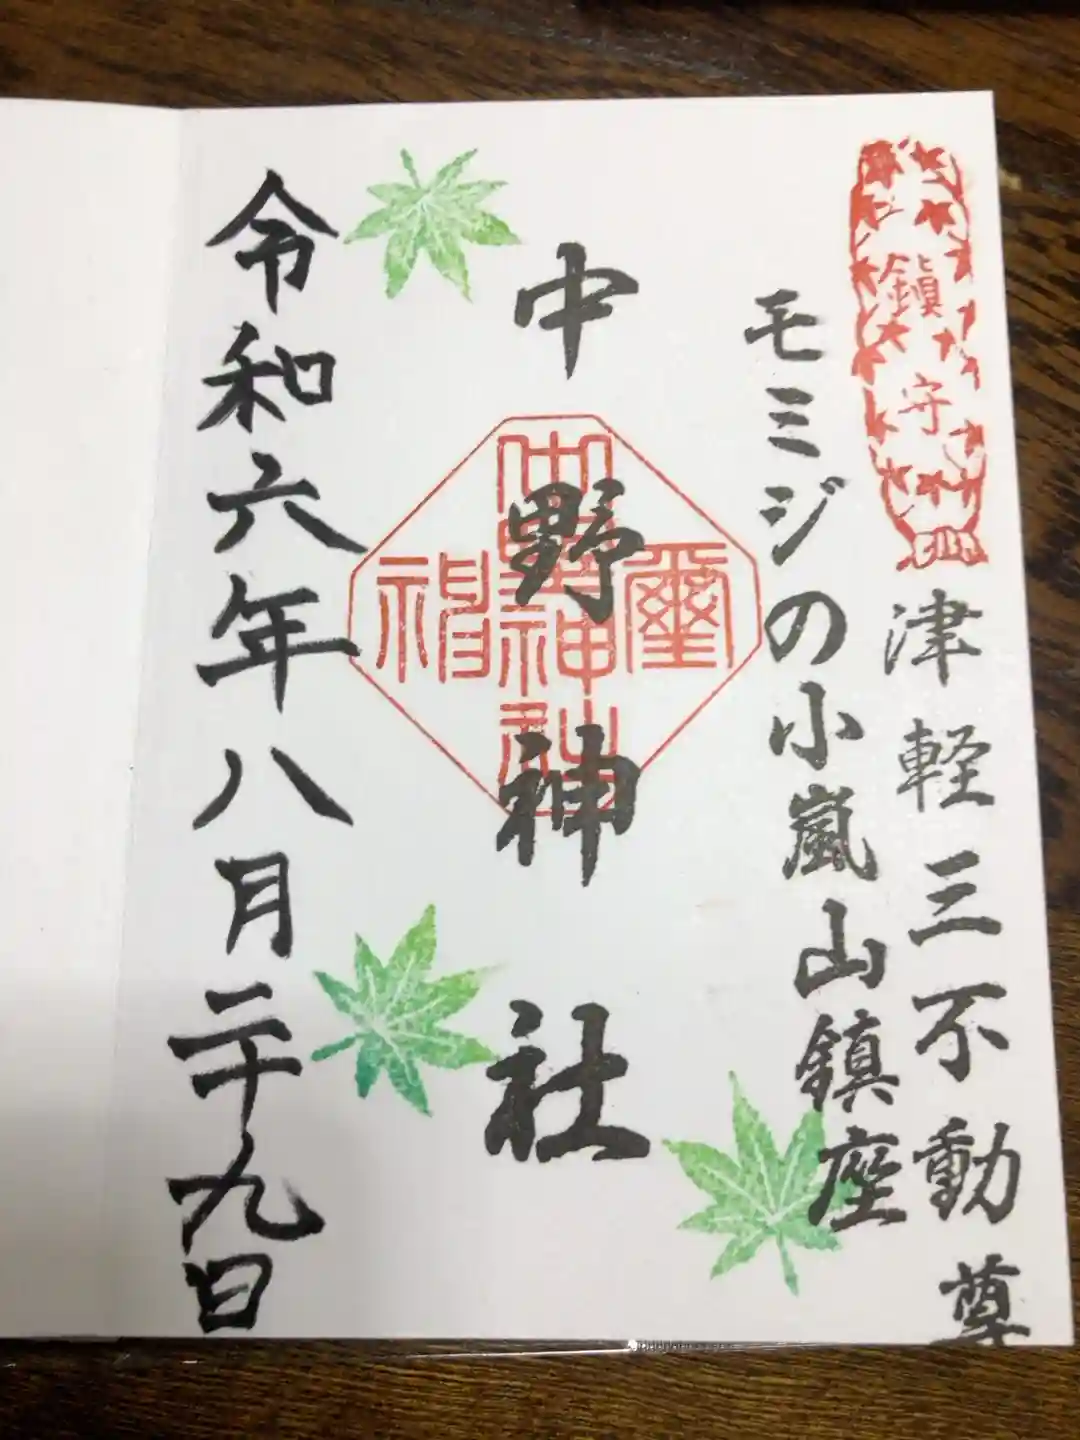 鎭守
津軽三不動尊
モミジの小嵐山鎮座
中野神社
中野神社
令和六年八月二十九日